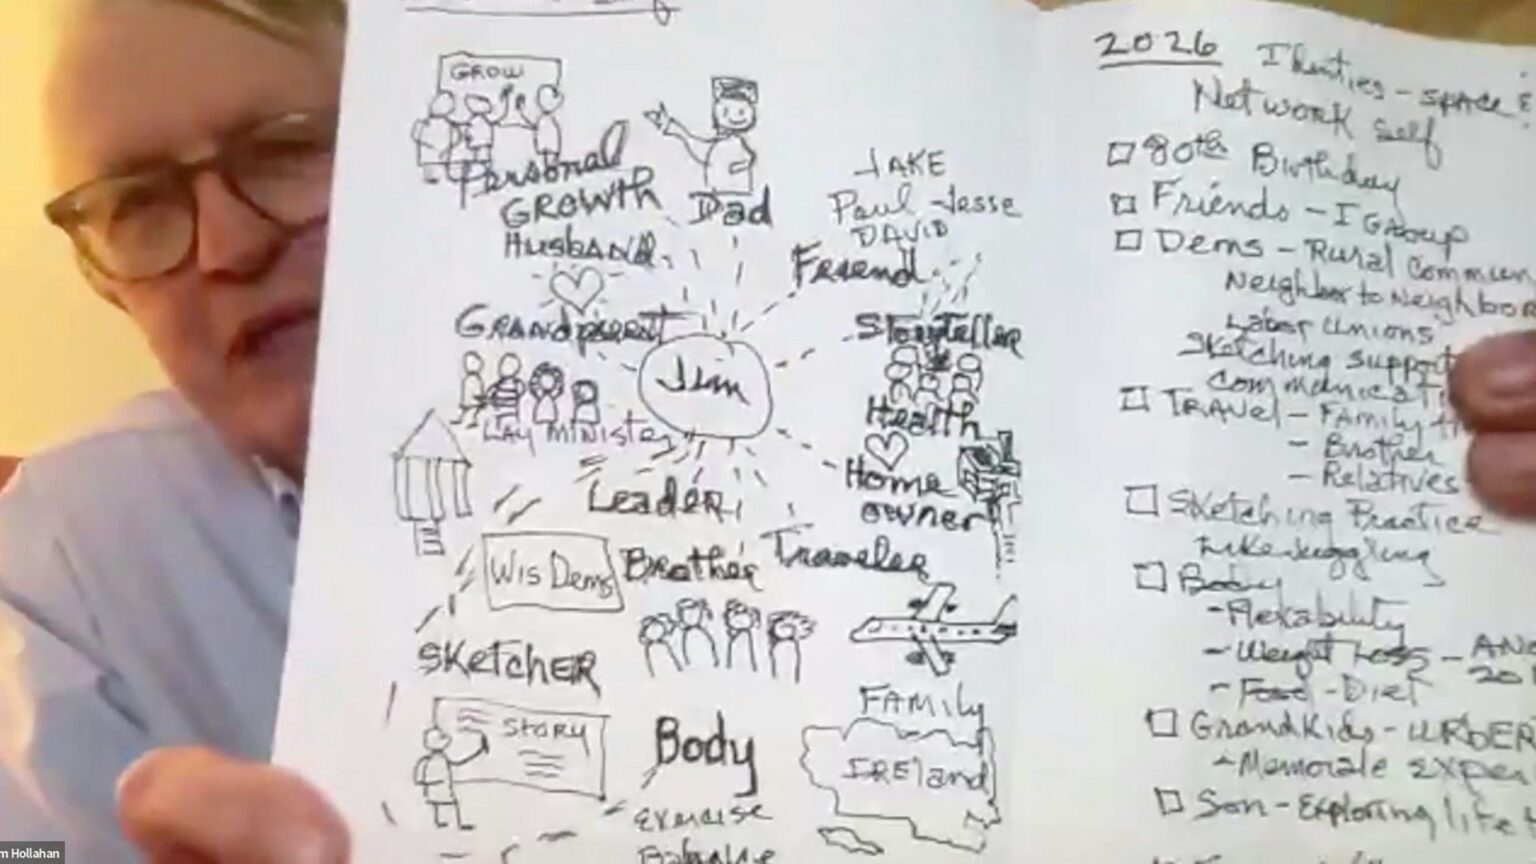 GROW
Personal
GROWTH
Dad
HUSBAND
JAKE
Paul - Jesse
DAVID
Friend
Grandparent
Storyteller
Jim
Lay Minister
Health
Home
owner
Leader
Wis Dems
Brother
Traveler
SKetcHER
STORY
Body
Exercise
FAMILY
IRELand
2026 Identities - space &
Network Self
80th Birthday
Friends - I Group
Dems - Rural Commun
Neighbor to Neighbor
Labor Unions
Sketching support
Communicati
TRAVEL - Family
- Brother
- Relatives
Sketching Practice
Like Juggling
Body
- Flexability
- Weight Loss -
- Food - Diet
GrandKids -
- Memorable Exper
Son - Exploring life
m Hollahan